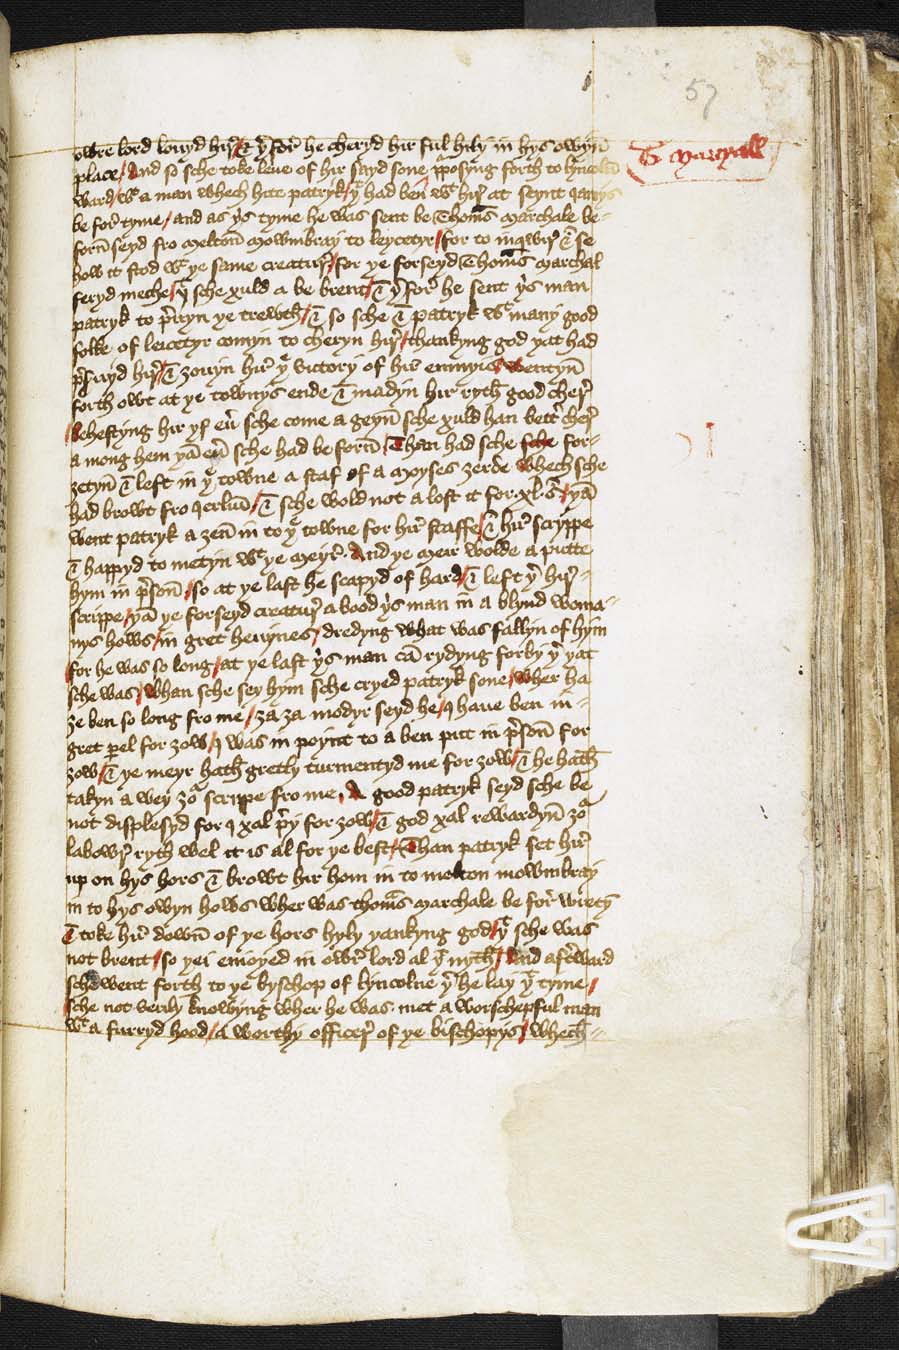 57
owre lord louyd hir / & þerfor he cheryd hir ful hily in hys owyn
T Marchall
place / And so sche toke leue of hir sayd sone purposyng forth to lyncoln
ward / wt a man whech hite patryk / yt had ben wt hir at seynt Jamys
be for tyme / and as ys tyme he was sent be Thomas Marchale be-
forn seyd fro Melton Mowmbray to leycetyr / for to inqwir & se
how it stod wt ye same creatur / for ye forseyd Thomas Marchal
feryd meche / yt sche xuld a be brent / & yerfor he sent ys man
patryk to preuyn ye trewth / & so sche & patryk wt many good
folke of leicetyr comyn to cheryn hir / thankyng god yat had
preseruyd hir / & zouyn hir ye victory of hir enmyis / wentyn
forth owt at ye townys ende & madyn hir ryth good cher
/ behestyng hir yf euer sche come a geyn sche xuld han better cher
a mong hem yan euer sche had be forn / Than had sche sche for-
zetyn & left in ye towne a staf of a Moyses zerde whech sche
had browt fro Jerusalem / & sche wold not a lost it for .xl. s / yan
went patryk a zen in to ye towne for hir staffe / & hir scryppe
& happyd to metyn wt ye meyr. And ye meir wolde a putte
hym in preson / so at ye last he scapyd of hard / & left yer hir-
scrippe / yan ye forseyd creatur a bood ys man in a blynd woma-
nys hows / in gret heuynes / dredyng what was fallyn of hym
for he was so long / at ye last ys man cam rydyng forby yer yat
sche was / whan sche sey hym sche cryed patryk sone / wher ha
ze ben so long fro me / za za modyr seyd he / I haue ben in-
gret perel for zow / I was in poynt to a ben put in preson for
zow / & ye meyr hath gretly turmentyd me for zow / & he hath
takyn a wey zowr scrippe fro me / A good patryk seyd sche be
not displesyd for I xal prey for zow / & god xal rewardyn zowr
labowr rych wel it is al for ye best / Than patryk set hir
up on hys hors & browt hir hom in to melton mowmbray
in to hys owyn hows wher was thomas Marchale be for wretyn
& toke hir down of ye hors hyly yankyng god / yt sche was
not brent / so yei enioyed in owr lord al yt nyth / And afterward
sche went forth to ye byschop of lyncolne yer he lay yt tyme /
sche not veryly knowyng wher he was. met a worschepful man
wt a furryd hood / a worthy officer of ye bischopys / whech-